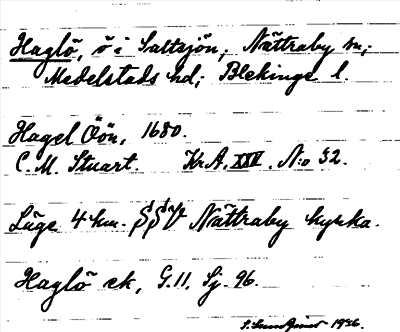 Haglö, ö i Saltsjön; Nättraby sn;
Medelstads hd; Blekinge l.
Hagel Öön, 1680.
C. M. Stuart. Kr. A. XXV. N:o 32.
Läge 4 km. SSV Nättraby kyrka.
Haglö ek, G. 11. Sj. 96.
1926.